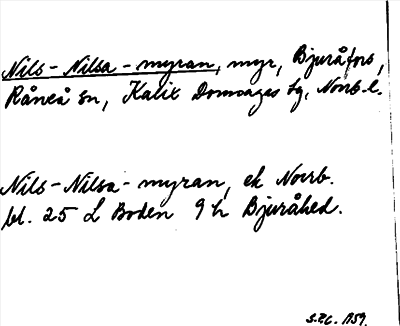 Nils-Nilsa-myran, myr, Bjuråfors,
Råneå sn, Kalix Domsagas tg, Norrb. l.
Nils-Nilsa-myran, ek Norrb.
bl. 25 L Boden 9 h Bjuråhed.